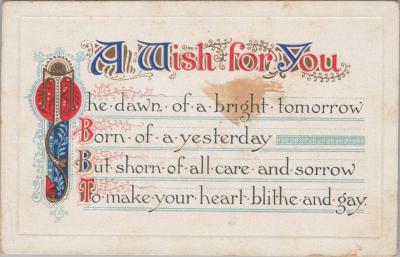 A Wish for You
The dawn·of·a·bright·tomorrow
Born·of·a·yesterday
But shorn·of·all·care·and·sorrow
To·make·your·heart·blithe·and·gay.